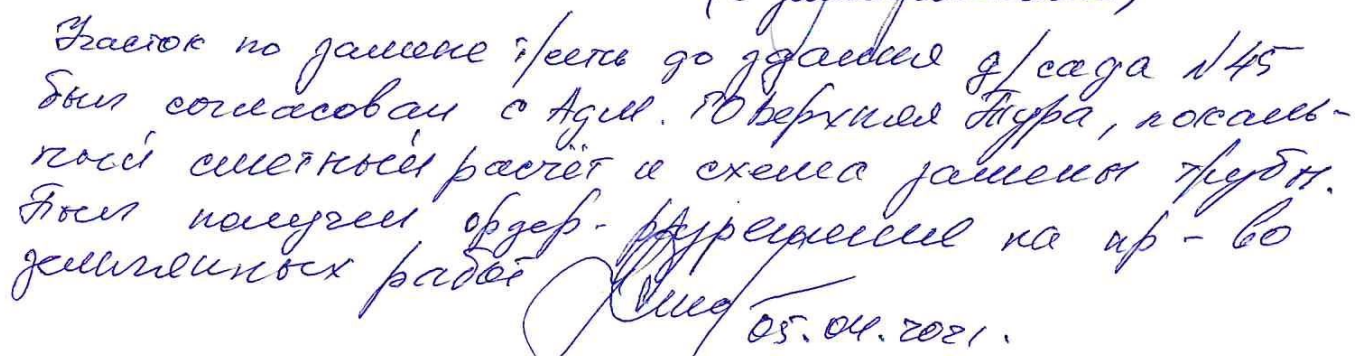 Участок по замене т/сети до здания д/сада №45
был согласован с Адм. ГО Верхняя Тура, локаль-
ный сметный расчёт и схема замены трубы.
Был получен ордер-разрешение на пр-во
земляных работ
05.04.2021.